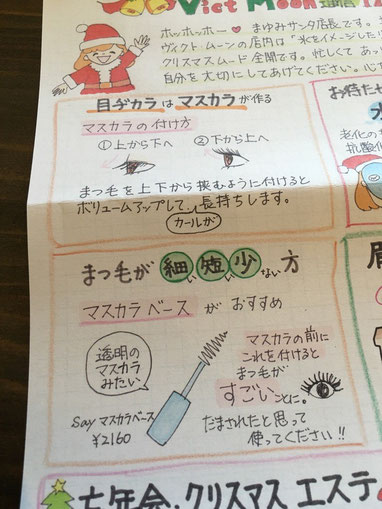 Vict Moon 通信
ホッホッホー♥ まゆみサンタ店長です。
ヴィクト・ムーンの店内は「氷をイメージした
クリスマスムード全開です。忙しくて あっ
自分を大切にしてあげてください。心
目ヂカラはマスカラが作る
マスカラの付け方
①上から下へ ②下から上へ
まつ毛を上下から挟むように付けると
ボリュームアップして、長持ちします。
カールが
お待たせ
老化の
抗酸化
まつ毛が 細い 短い 少ない 方
マスカラベース が おすすめ
透明の
マスカラ
みたい
マスカラの前に
これを付けると
まつ毛が
すごいことに。
Say マスカラベース
¥2160
だまされたと思って
使ってください!!
眉
七年会、クリスマス エステ